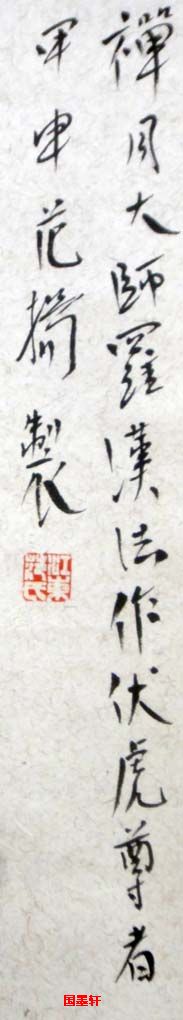 禪月大師羅漢法作伏虎尊者
甲申范揚製
江東范氏
国墨轩